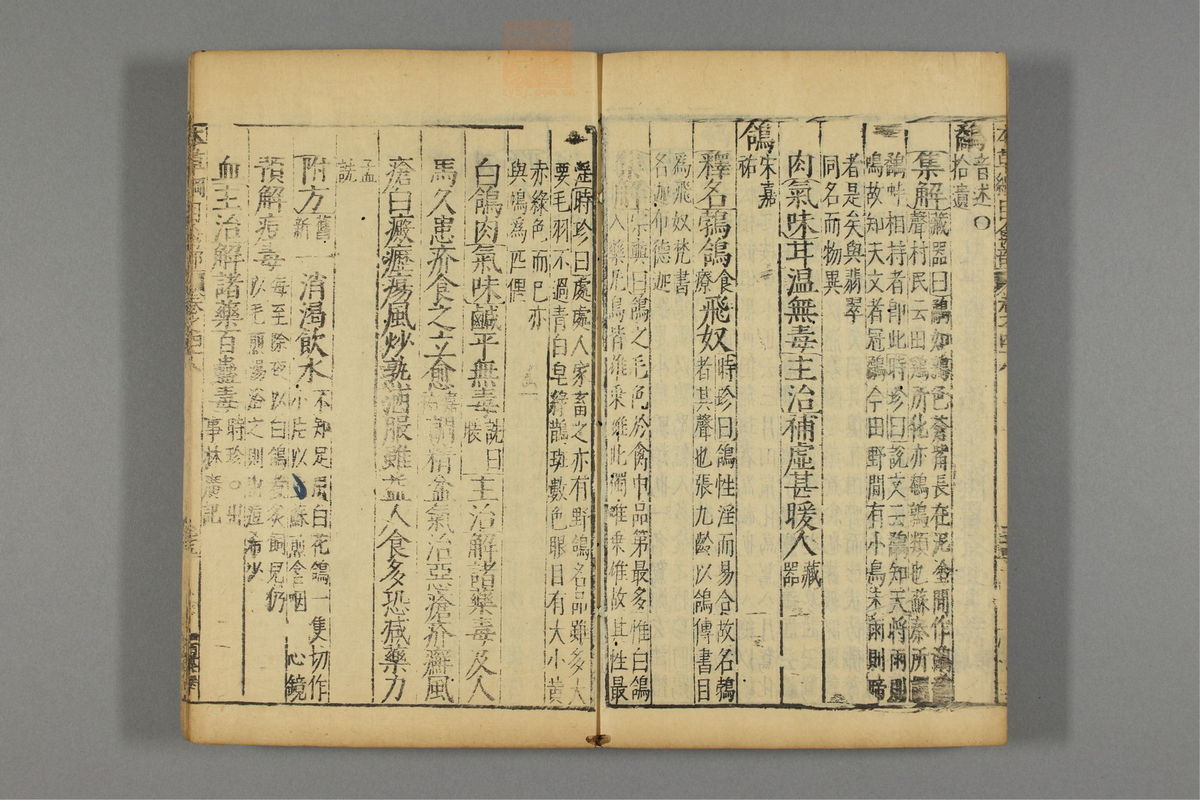 鷸音述○
拾遺
集解藏器曰鷸如鶉色蒼觜長在泥塗間作鷸
聲村民云田雞所化亦鵪鶉類也蘇秦所謂
鷸蚌相持者即此時珍曰說文云鷸知天將雨則
鳴故知天文者冠鷸今田野間有小鳥未雨則啼
者是矣與翡翠
同名而物異
肉氣味甘溫無毒主治補虛甚暖人藏
器
鴿宋嘉
祐
釋名鵓鴿食療飛奴時珍曰鴿性淫而易合故名鵓
者其聲也張九齡以鴿傳書目
為飛奴梵書
名迦布德迦
宗奭曰鴿之毛色於禽中品第最多惟白鴿
入藥凡鳥皆雄乘雌此獨雌乘雄故其性最
淫時珍曰處處人家畜之亦有野鴿名品雖多大
要毛羽不過青白皂綠鵲斑數色眼目有大小黃
赤綠色而已亦
與鳩為匹偶
白鴿肉氣味鹹平無毒詵曰
主治解諸藥毒及人
馬久患疥食之立愈嘉祐調精益氣治惡瘡疥癬風
瘡白癜癧瘍風炒熟酒服雖益人食多恐減藥力
孟
詵
附方舊
新一消渴飲水不知足用白花鴿一隻切作
小片以蘇煎含咽 心鏡
預解痘毒每至除夜以白鴿煮炙飼兒仍
以毛煎湯浴之則出痘稀少
血主治解諸藥百蠱毒時珍○出
事林廣記